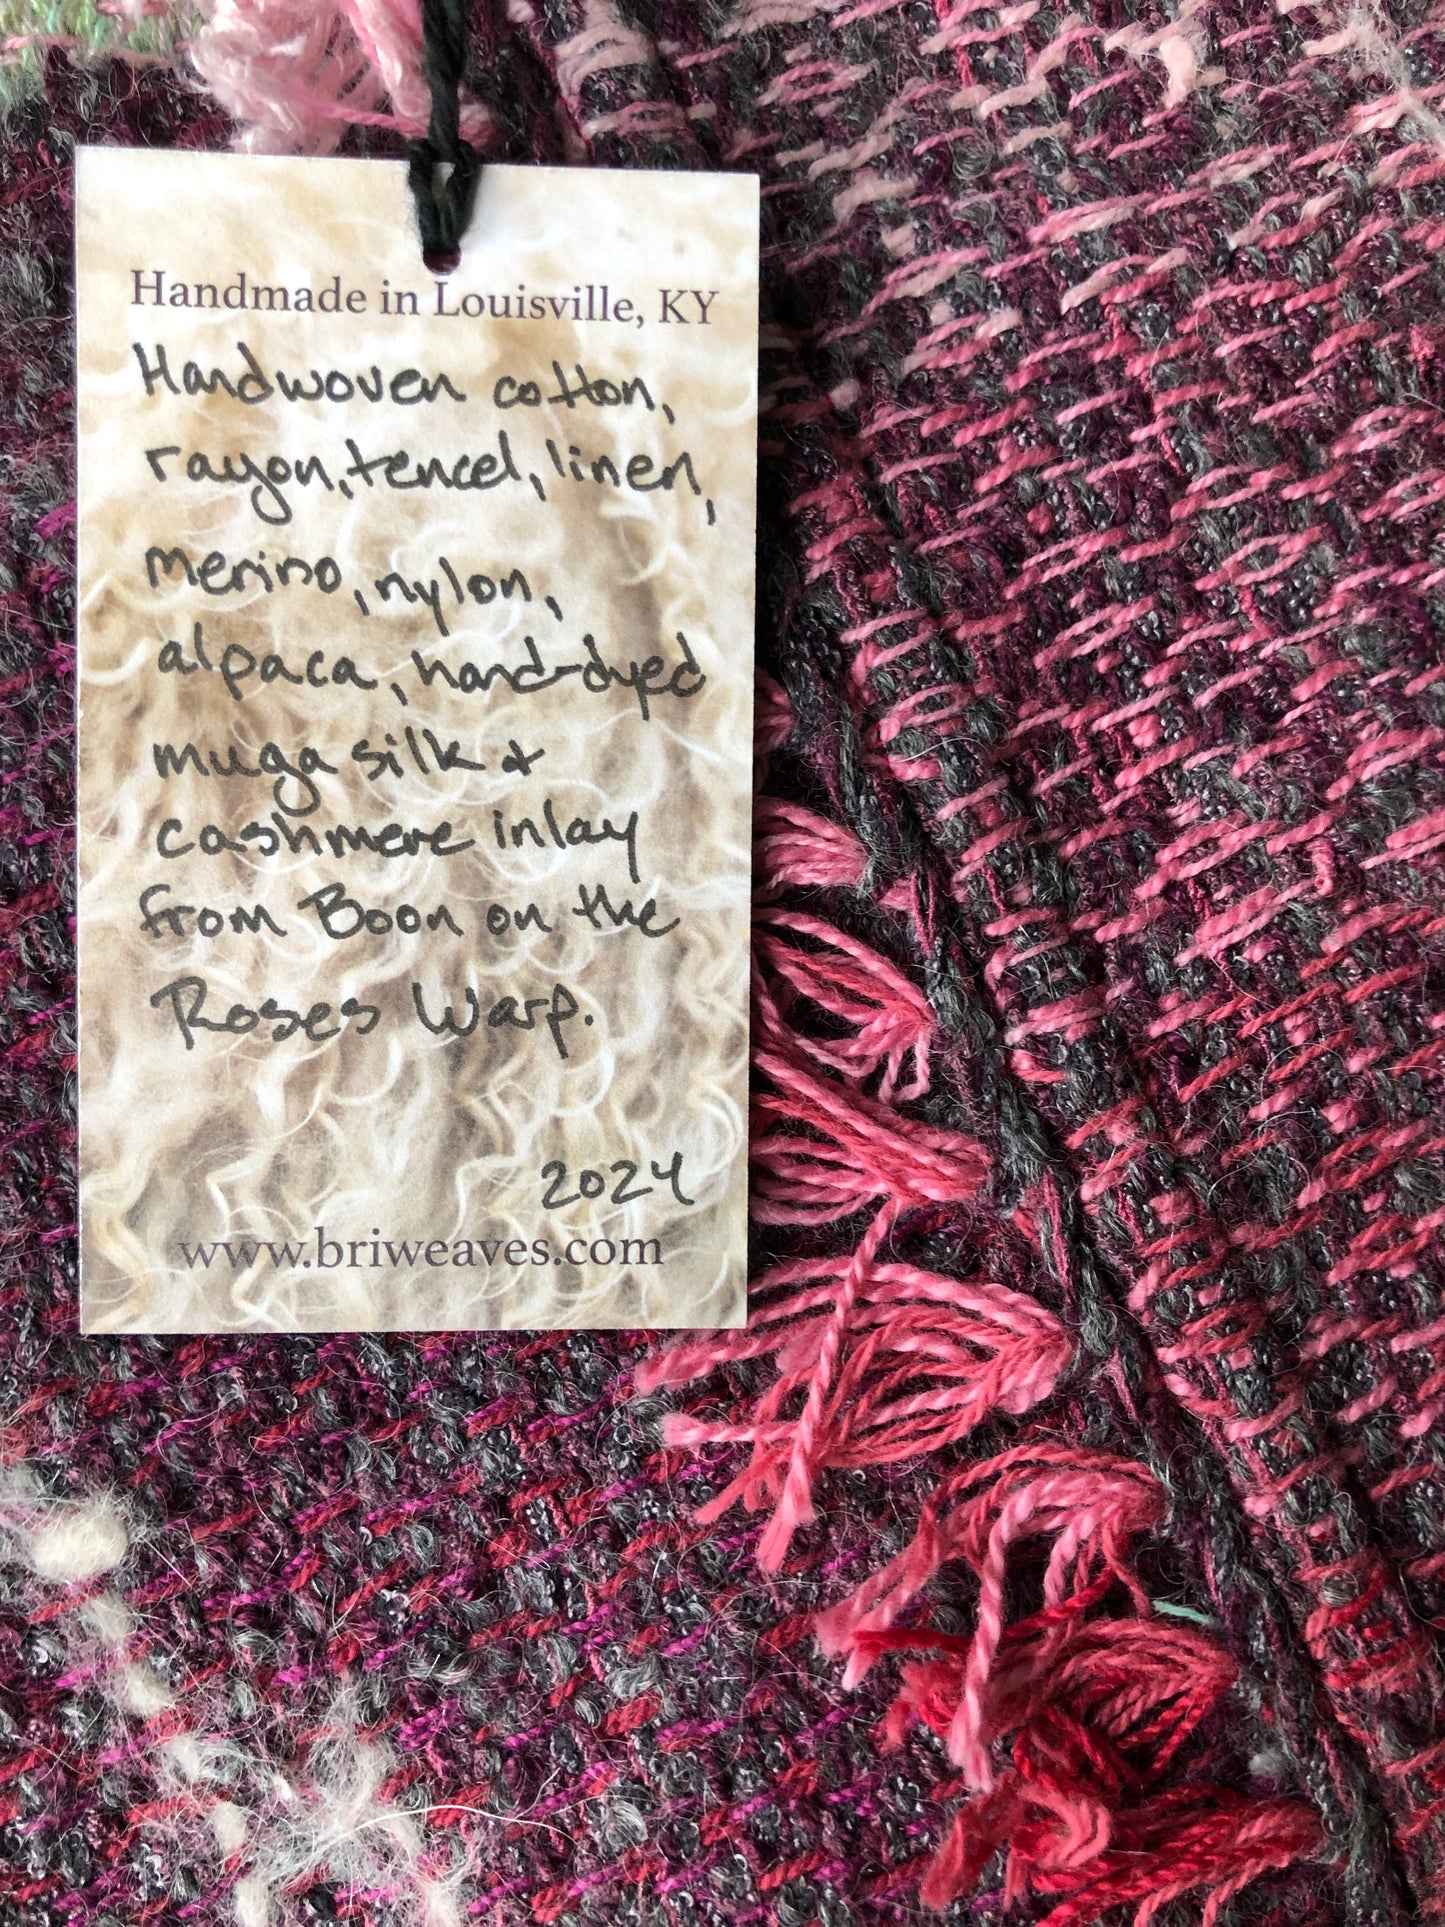 Handmade in Louisville, KY
Handwoven cotton,
rayon, tencel, linen,
merino, nylon,
alpaca, hand-dyed
muga silk &
cashmere inlay
from Boon on the
Roses Warp.
2024
www.briweaves.com